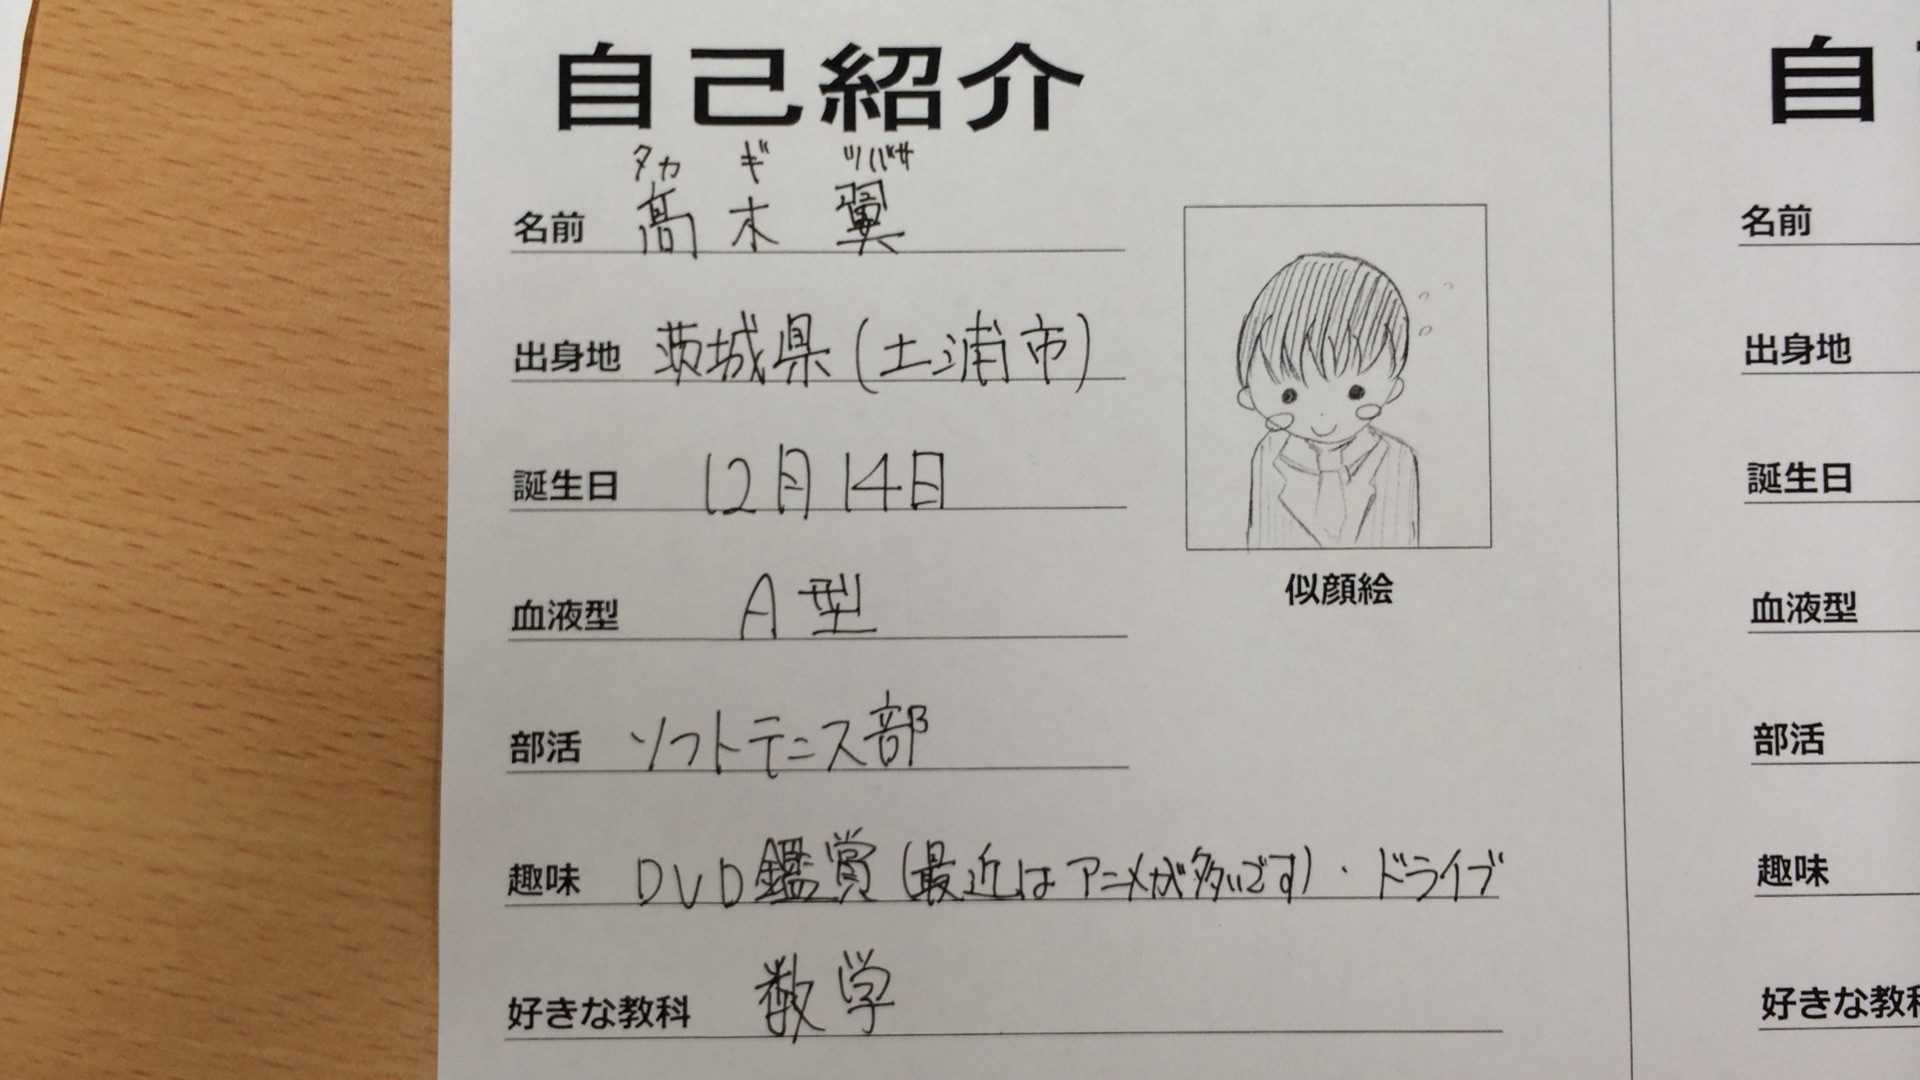 自己紹介
タカ ギ ツバサ
名前 髙木 翼
出身地 茨城県(土浦市)
誕生日 12月14日
血液型 A型
部活 ソフトテニス部
趣味 DVD鑑賞(最近はアニメが多いです)・ドライブ
好きな教科 数学
似顔絵
自
名前
出身地
誕生日
血液型
部活
趣味
好きな教科